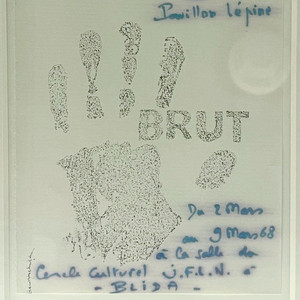 Pavillon Lépine
BRUT
Du 2 Mars
au 9 Mars 68
à la salle du
Cercle Culturel J.F.L.N. à
- BLIDA -